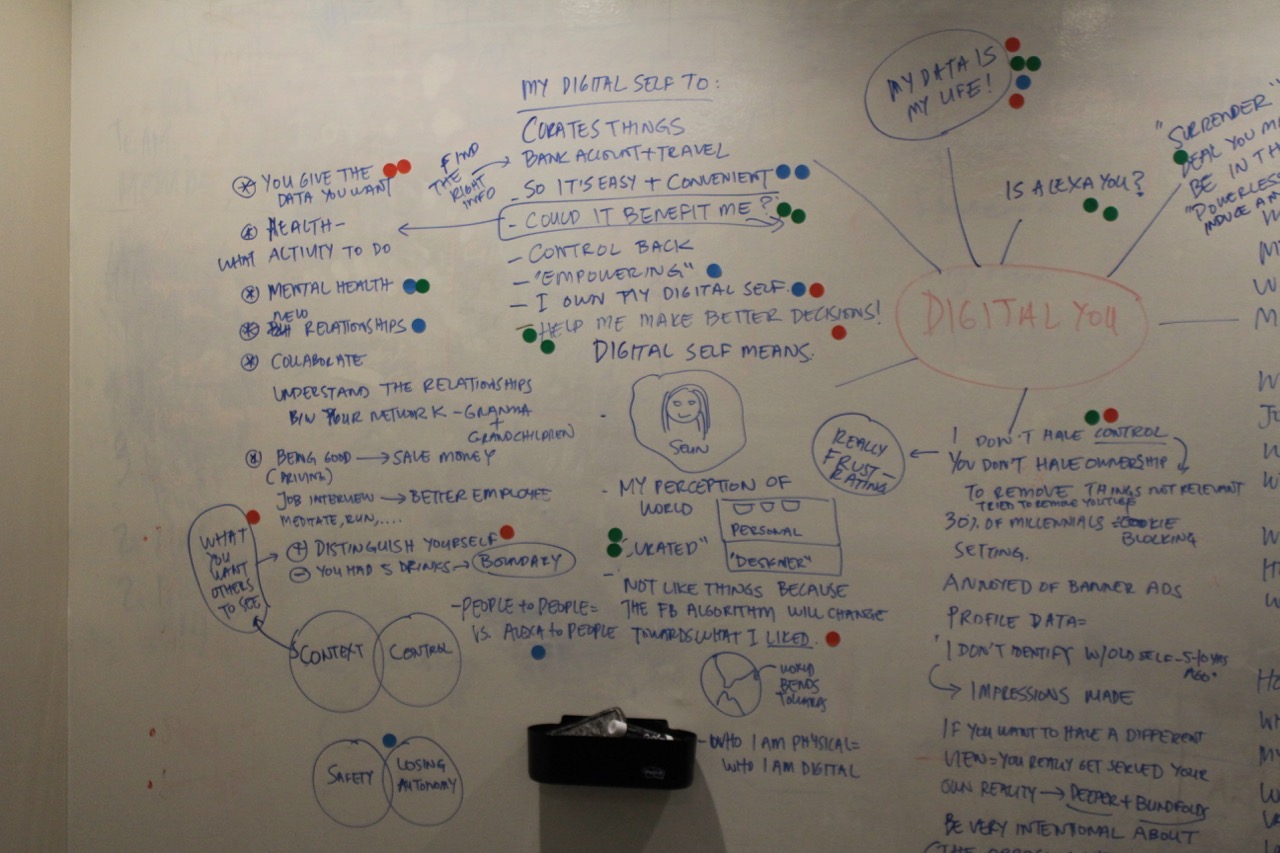 MY DIGITAL SELF TO:
CURATES THINGS
BANK ACCOUNT + TRAVEL
- SO IT'S EASY + CONVENIENT
- COULD IT BENEFIT ME?
- CONTROL BACK
- "EMPOWERING"
- I OWN MY DIGITAL SELF.
- HELP ME MAKE BETTER DECISIONS!
FIND
THE RIGHT
INFO
YOU GIVE THE
DATA YOU WANT
HEALTH -
WHAT ACTIVITY TO DO
MENTAL HEALTH
NEW
RELATIONSHIPS
COLLABORATE
UNDERSTAND THE RELATIONSHIPS
B/W YOUR NETWORK - GRANDMA
+
GRANDCHILDREN
BEING GOOD → SAVE MONEY
JOB INTERVIEW → BETTER EMPLOYEE
MEDITATE, RUN, ....
WHAT
YOU
WANT
OTHERS
TO SEE
+ DISTINGUISH YOURSELF
- YOU HAD 5 DRINKS → BOUNDARY
CONTEXT
CONTROL
SAFETY
LOSING
AUTONOMY
- PEOPLE TO PEOPLE =
VS. ALEXA TO PEOPLE
DIGITAL SELF MEANS.
- MY PERCEPTION OF
WORLD
PERSONAL
"DESIGNER"
- NOT LIKE THINGS BECAUSE
THE FB ALGORITHM WILL CHANGE
TOWARDS WHAT I LIKED.
WORLD
BENDS
TOWARDS
- WHO I AM PHYSICAL =
WHO I AM DIGITAL
MY DATA IS
MY LIFE!
IS ALEXA YOU?
"SURRENDER"
BE IN
"POWERLESS
INDUCE A
DIGITAL YOU
REALLY
FRUST-
RATING
I DON'T HAVE CONTROL
YOU DON'T HAVE OWNERSHIP
TO REMOVE THINGS NOT RELEVANT
TRIED TO REMOVE YOUTUBE
30% OF MILLENNIALS = COOKIE
BLOCKING
SETTING.
ANNOYED OF BANNER ADS
PROFILE DATA =
"I DON'T IDENTIFY W/ OLD SELF - 5-10 YRS
AGO"
→ IMPRESSIONS MADE
IF YOU WANT TO HAVE A DIFFERENT
VIEW = YOU REALLY GET SERVED YOUR
OWN REALITY → DEEPER + BLINDFOLDS
BE VERY INTENTIONAL ABOUT